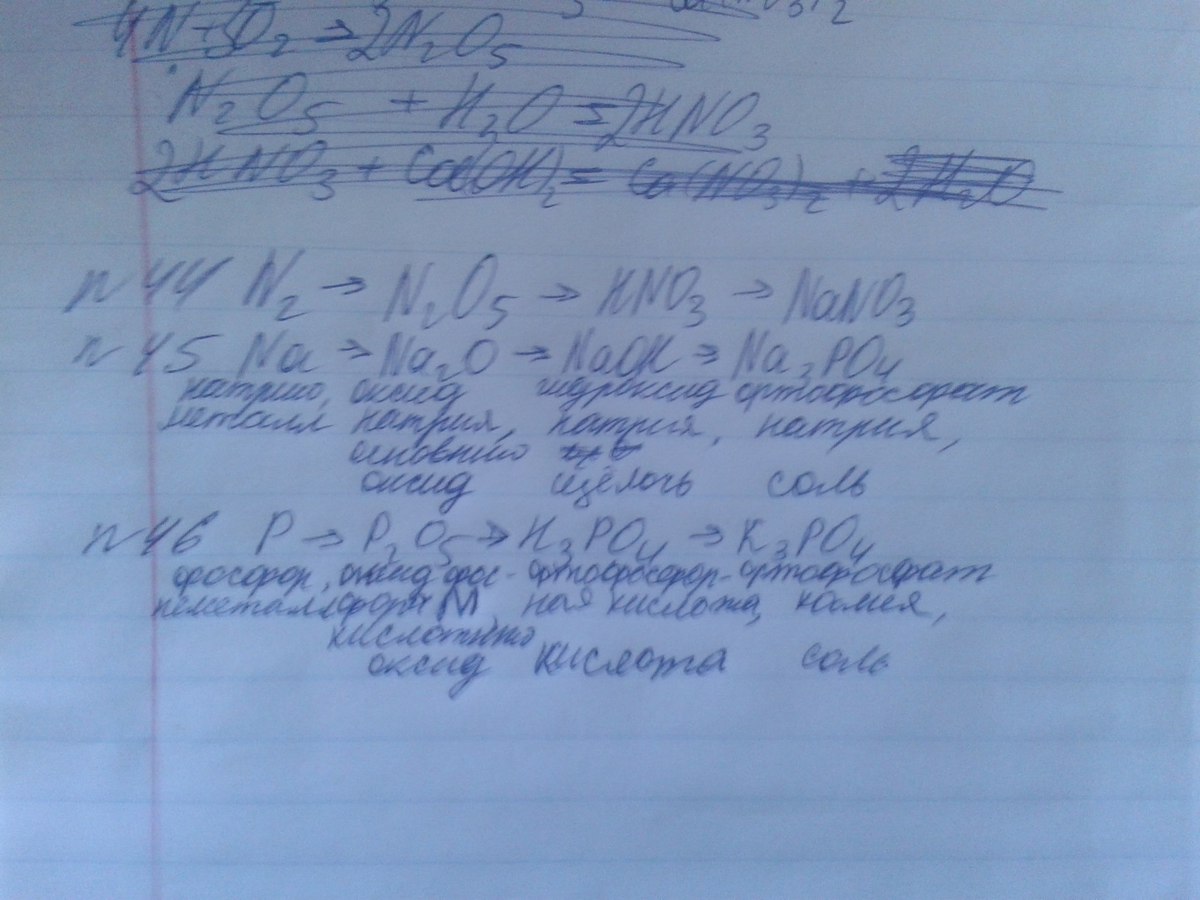 4N+5O₂ → 2N₂O₅
N₂O₅ + H₂O = 2HNO₃
2HNO₃ + Ca(OH)₂ = Ca(NO₃)₂ + 2H₂O
n 44 N₂ → N₂O₅ → HNO₃ → NaNO₃
n 45 Na → Na₂O → NaOH → Na₃PO₄
натрий, оксид гидроксид ортофосфат
металл натрия, натрия, натрия,
основный
оксид щёлочь соль
n 46 P → P₂O₅ → H₃PO₄ → K₃PO₄
фосфор, оксид фос- ортофосфор- ортофосфат
неметалл фора ная кислота, калия,
кислотный
оксид кислота соль